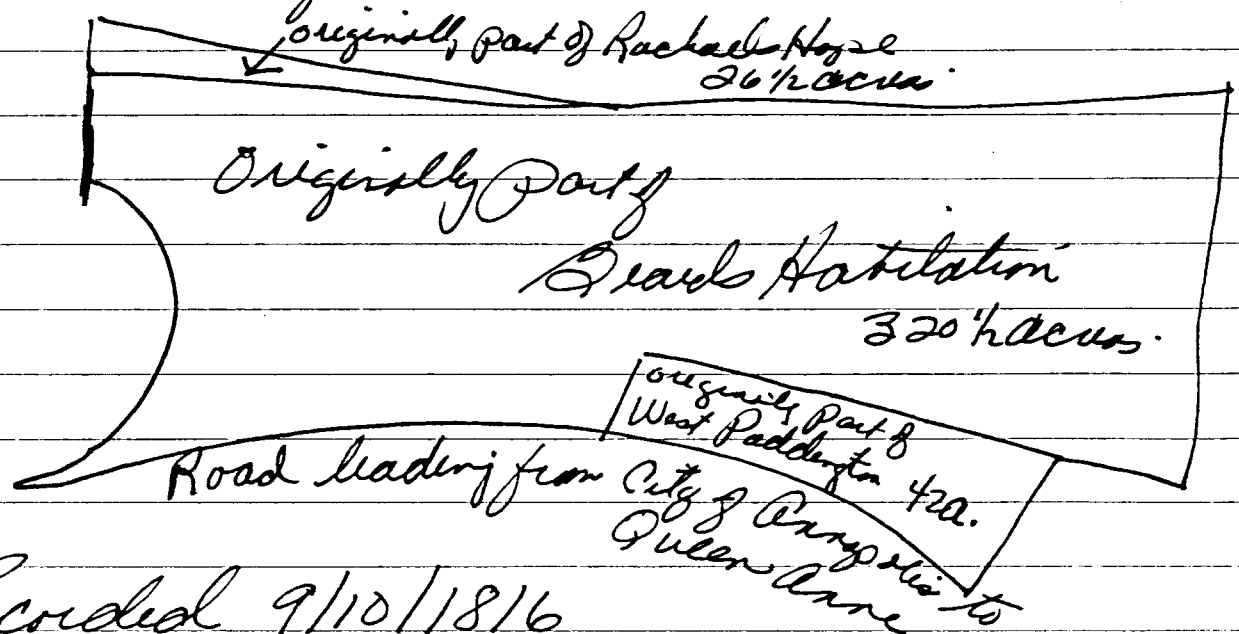 originally part of Rachaels Hope
26 1/2 acres
Originally part of
Beards Habitation
320 1/2 acres.
originally part of
West Paddington 42a.
Road leading from City of Annapolis to
Queen Anne
corded 9/10/1816